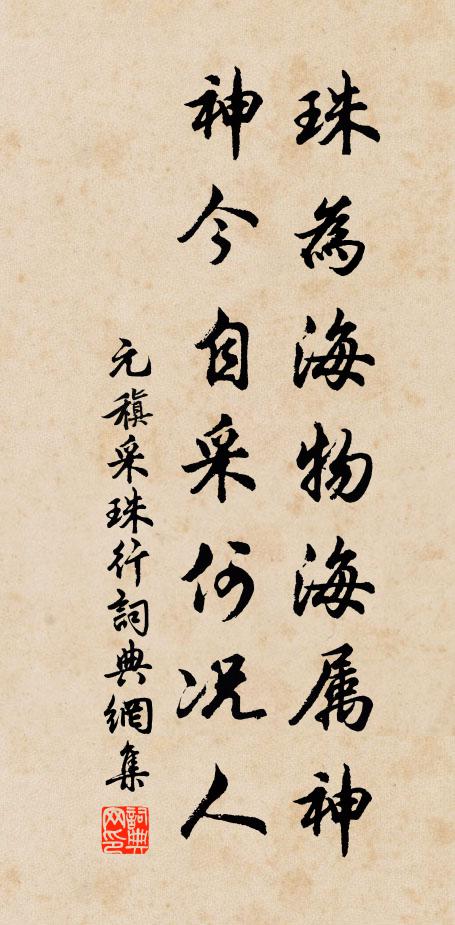 珠為海物海属神
神今自采何况人
元稹采珠行詞典網集
詞典
网印